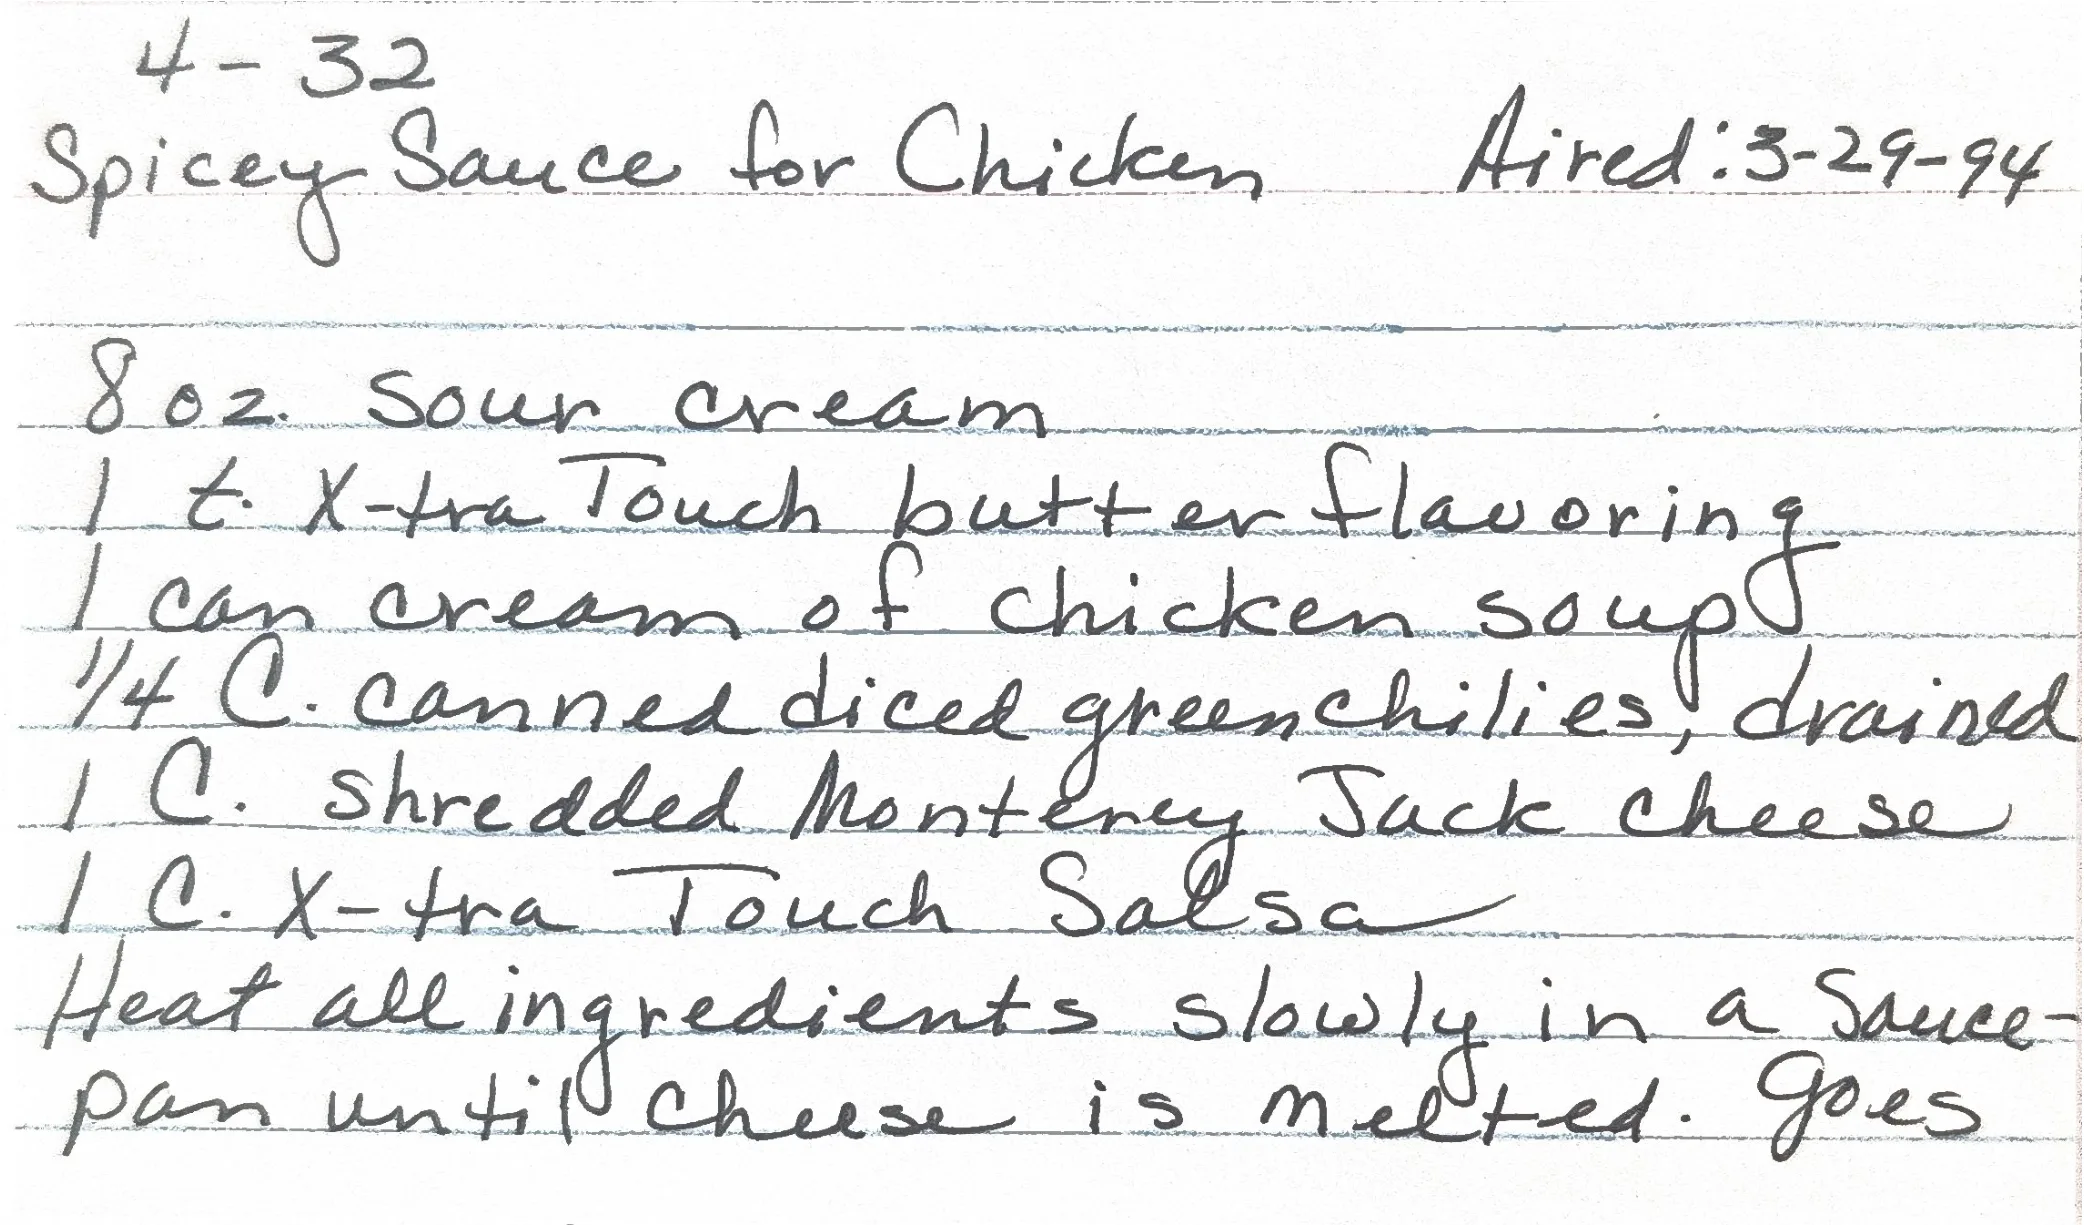 4-32
Spicey Sauce for Chicken Aired: 3-29-94
8 oz. sour cream
1 t. X-tra Touch butter flavoring
1 can cream of chicken soup
1/4 C. canned diced green chilies, drained
1 C. shredded Monterey Jack cheese
1 C. X-tra Touch Salsa
Heat all ingredients slowly in a Sauce-
pan until cheese is melted. Goes